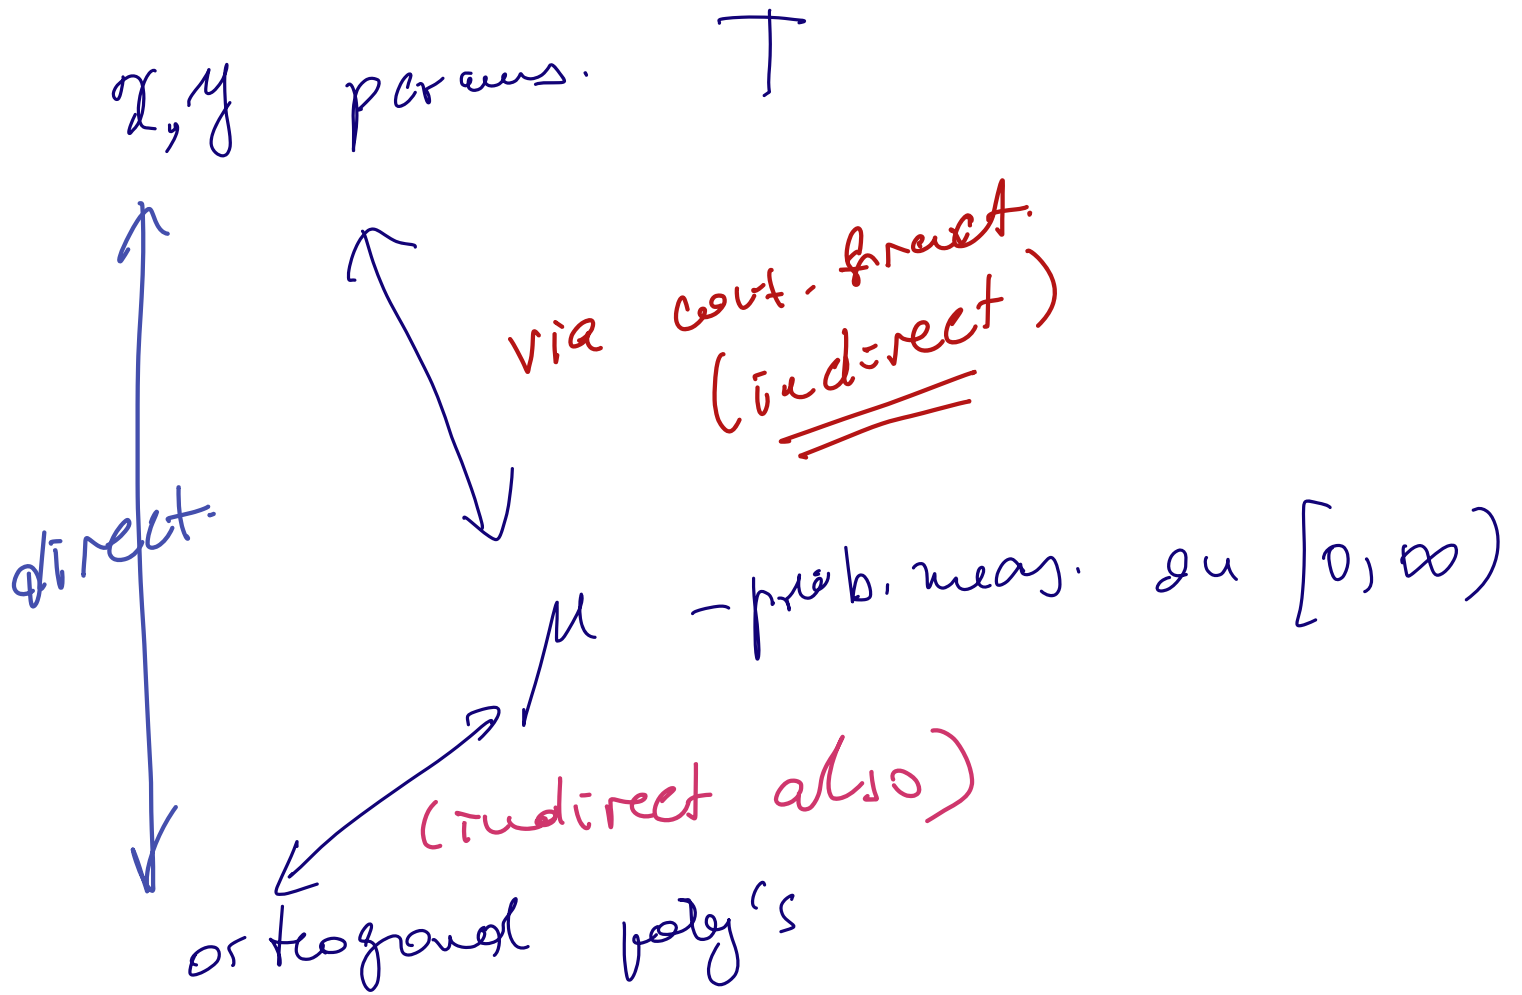 x, y params. T
via cont. fract.
(indirect)
direct.
μ - prob. meas. on [0, ∞)
(indirect also)
orthogonal poly's